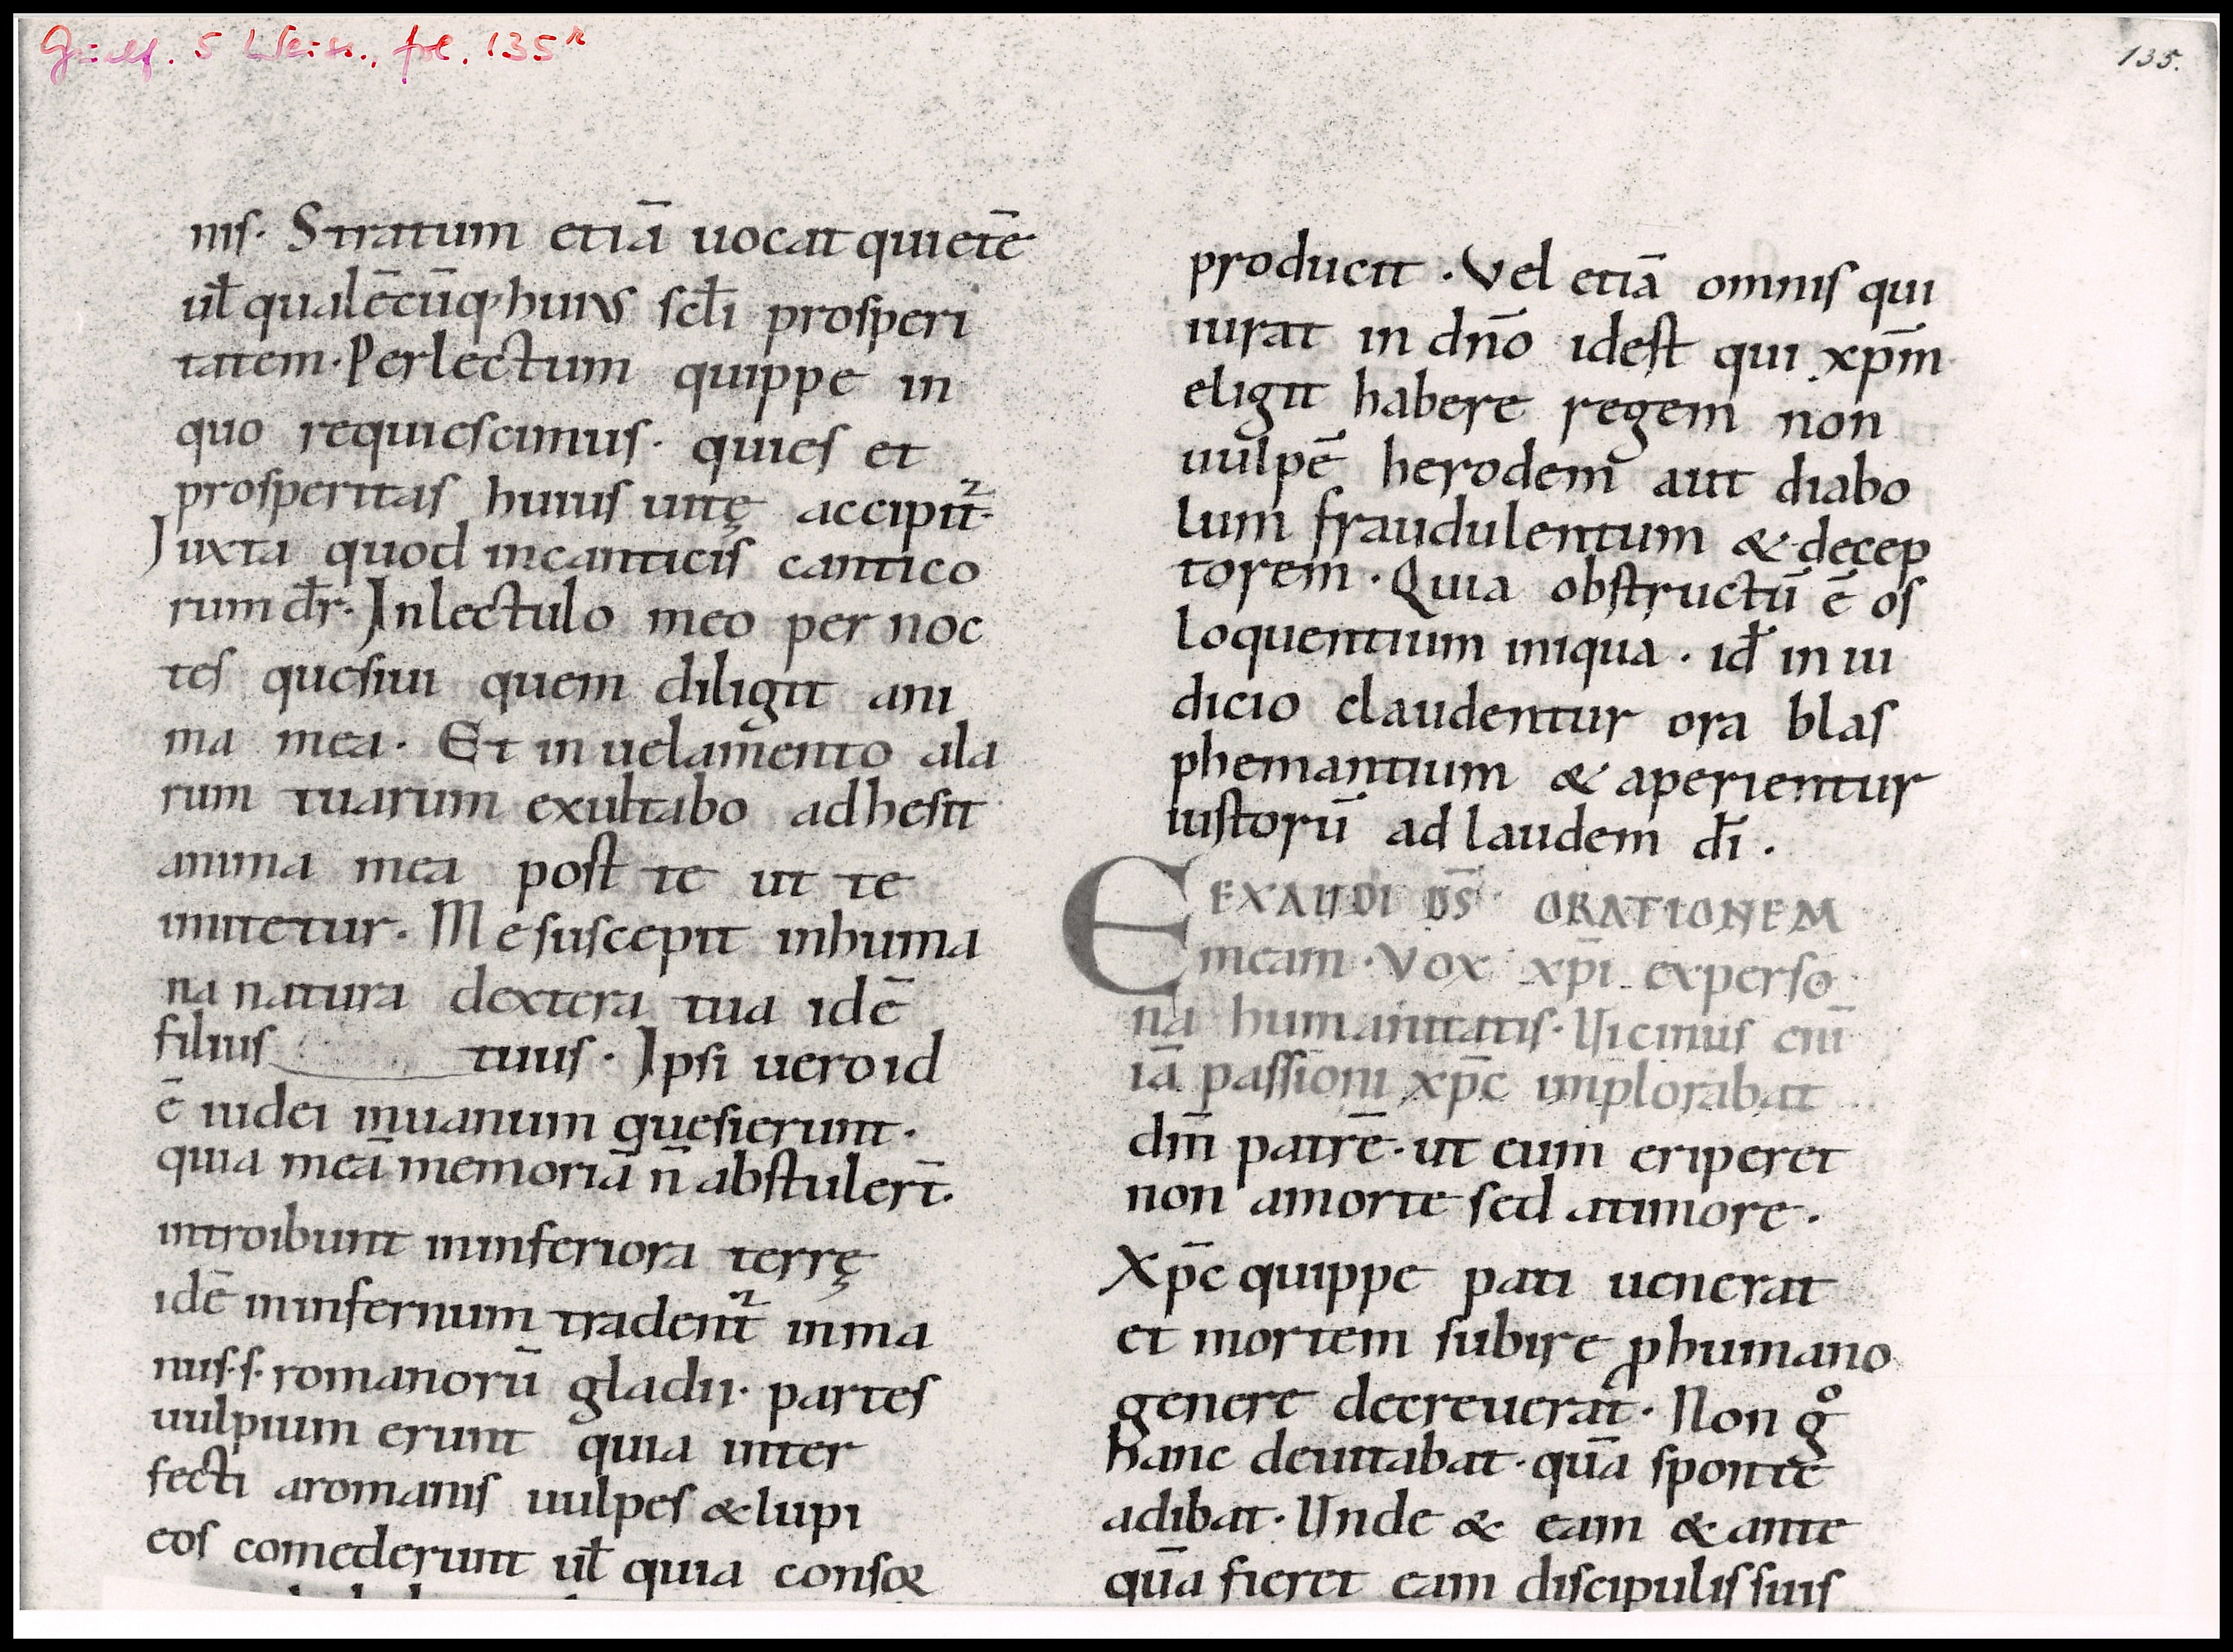 Guelf. 5 Weiss., fol. 135ʳ
135.
nis. Stratum etiā uocat quietē
ul̄ qualēcūq; huius scl̄i prosperi
tatem. Per lectum quippe in
quo requiescimus. quies et
prosperitas huius uitę accipit᷑.
Juxta quod in canticis cantico
rum dr̄. In lectulo meo per noc
tes quesiui quem diligit ani
ma mea. Et in uelamento ala
rum tuarum exultabo adhesit
anima mea post te ut te
imitetur. Me suscepit inhuma
na natura dextera tua idē
filius tuus. Ipsi uero id
ē iudei inuanum quesierunt.
quia meā memoriā n̄ abstuler̄t.
introibunt in inferiora terrę
idē in infernum tradent᷑ in ma
nus .s. romanorū gladii. partes
uulpium erunt quia inter
fecti aromanis uulpes & lupi
eos comederunt ul̄ quia consor
producit. Vel etiā omnis qui
iurat in dn̄o idest qui xp̄m
eligit habere regem non
uulpē herodem aut diabo
lum fraudulentum & decep
torem. Quia obstructū ē os
loquentium iniqua. id̄ in iu
dicio claudentur ora blas
phemantium & aperientur
iustorū ad laudem dī.
EEXAUDI DS̄ ORATIONEM
meam. Vox xp̄i experso
na humanitatis. Uicinus eni̅
iā passioni xp̄c implorabat
dm̄ patrē. ut eum eriperet
non amorte sed atimore.
Xp̄c quippe pati uenerat
et mortem subire ꝓhumano
genere decreuerat. Non gͦ
hanc deuitabat. quā sponte
adibat. Unde & eam & ante
quā fieret eam discipulis suis